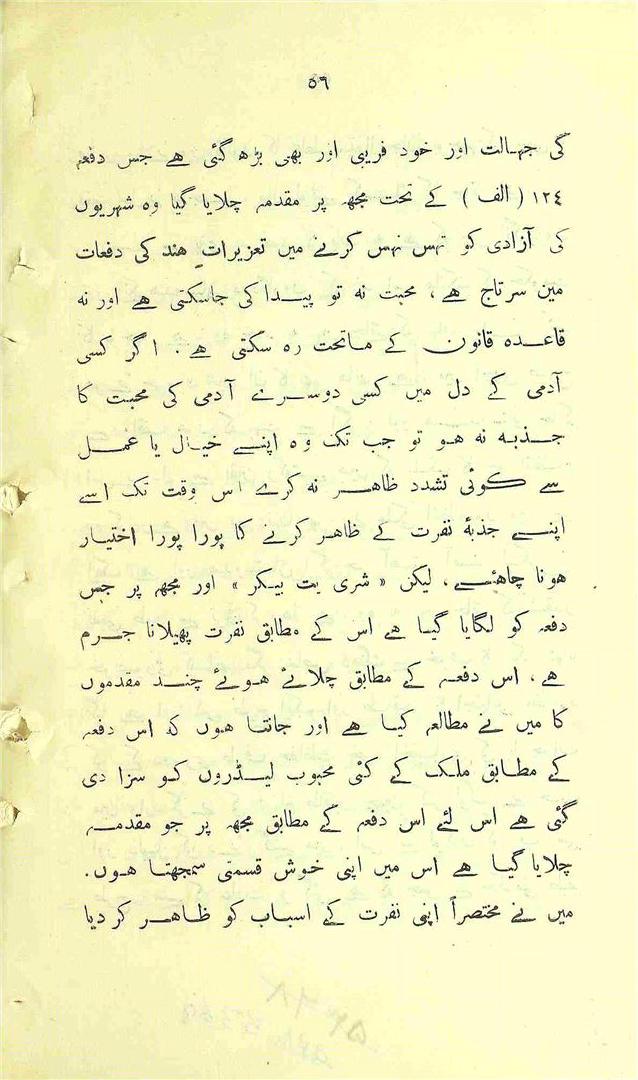 ٥٦
گی جہالت اور خود فریبی اور بھی بڑھ گئی ہے جس دفعہ
١٢٤ ( الف ) کے تحت مجھ پر مقدمہ چلایا گیا وہ شہریوں
کی آزادی کو تہس نہس کرنے میں تعزیرات ہند کی دفعات
مین سرتاج ہے ، محبت نہ تو پیدا کی جاسکتی ہے اور نہ
قاعدہ قانون کے ماتحت رہ سکتی ہے . اگر کسی
آدمی کے دل میں کسی دوسرے آدمی کی محبت کا
جذبہ نہ ہو تو جب تک وہ اپنے خیال یا عمل
سے کوئی تشدد ظاہر نہ کرے اس وقت تک اسے
اپنے جذبۂ نفرت کے ظاہر کرنے کا پورا پورا اختیار
ہونا چاہئے ، لیکن « شری یت بیکر » اور مجھ پر جس
دفعہ کو لگایا گیا ہے اس کے مطابق نفرت پھیلانا جرم
ہے ، اس دفعہ کے مطابق چلائے ہوئے چند مقدموں
کا میں نے مطالعہ کیا ہے اور جانتا ہوں کہ اس دفعہ
کے مطابق ملک کے کئی محبوب لیڈروں کو سزا دی
گئی ہے اس لئے اس دفعہ کے مطابق مجھ پر جو مقدمہ
چلایا گیا ہے اس میں اپنی خوش قسمتی سمجھتا ہوں .
میں نے مختصراً اپنی نفرت کے اسباب کو ظاہر کر دیا